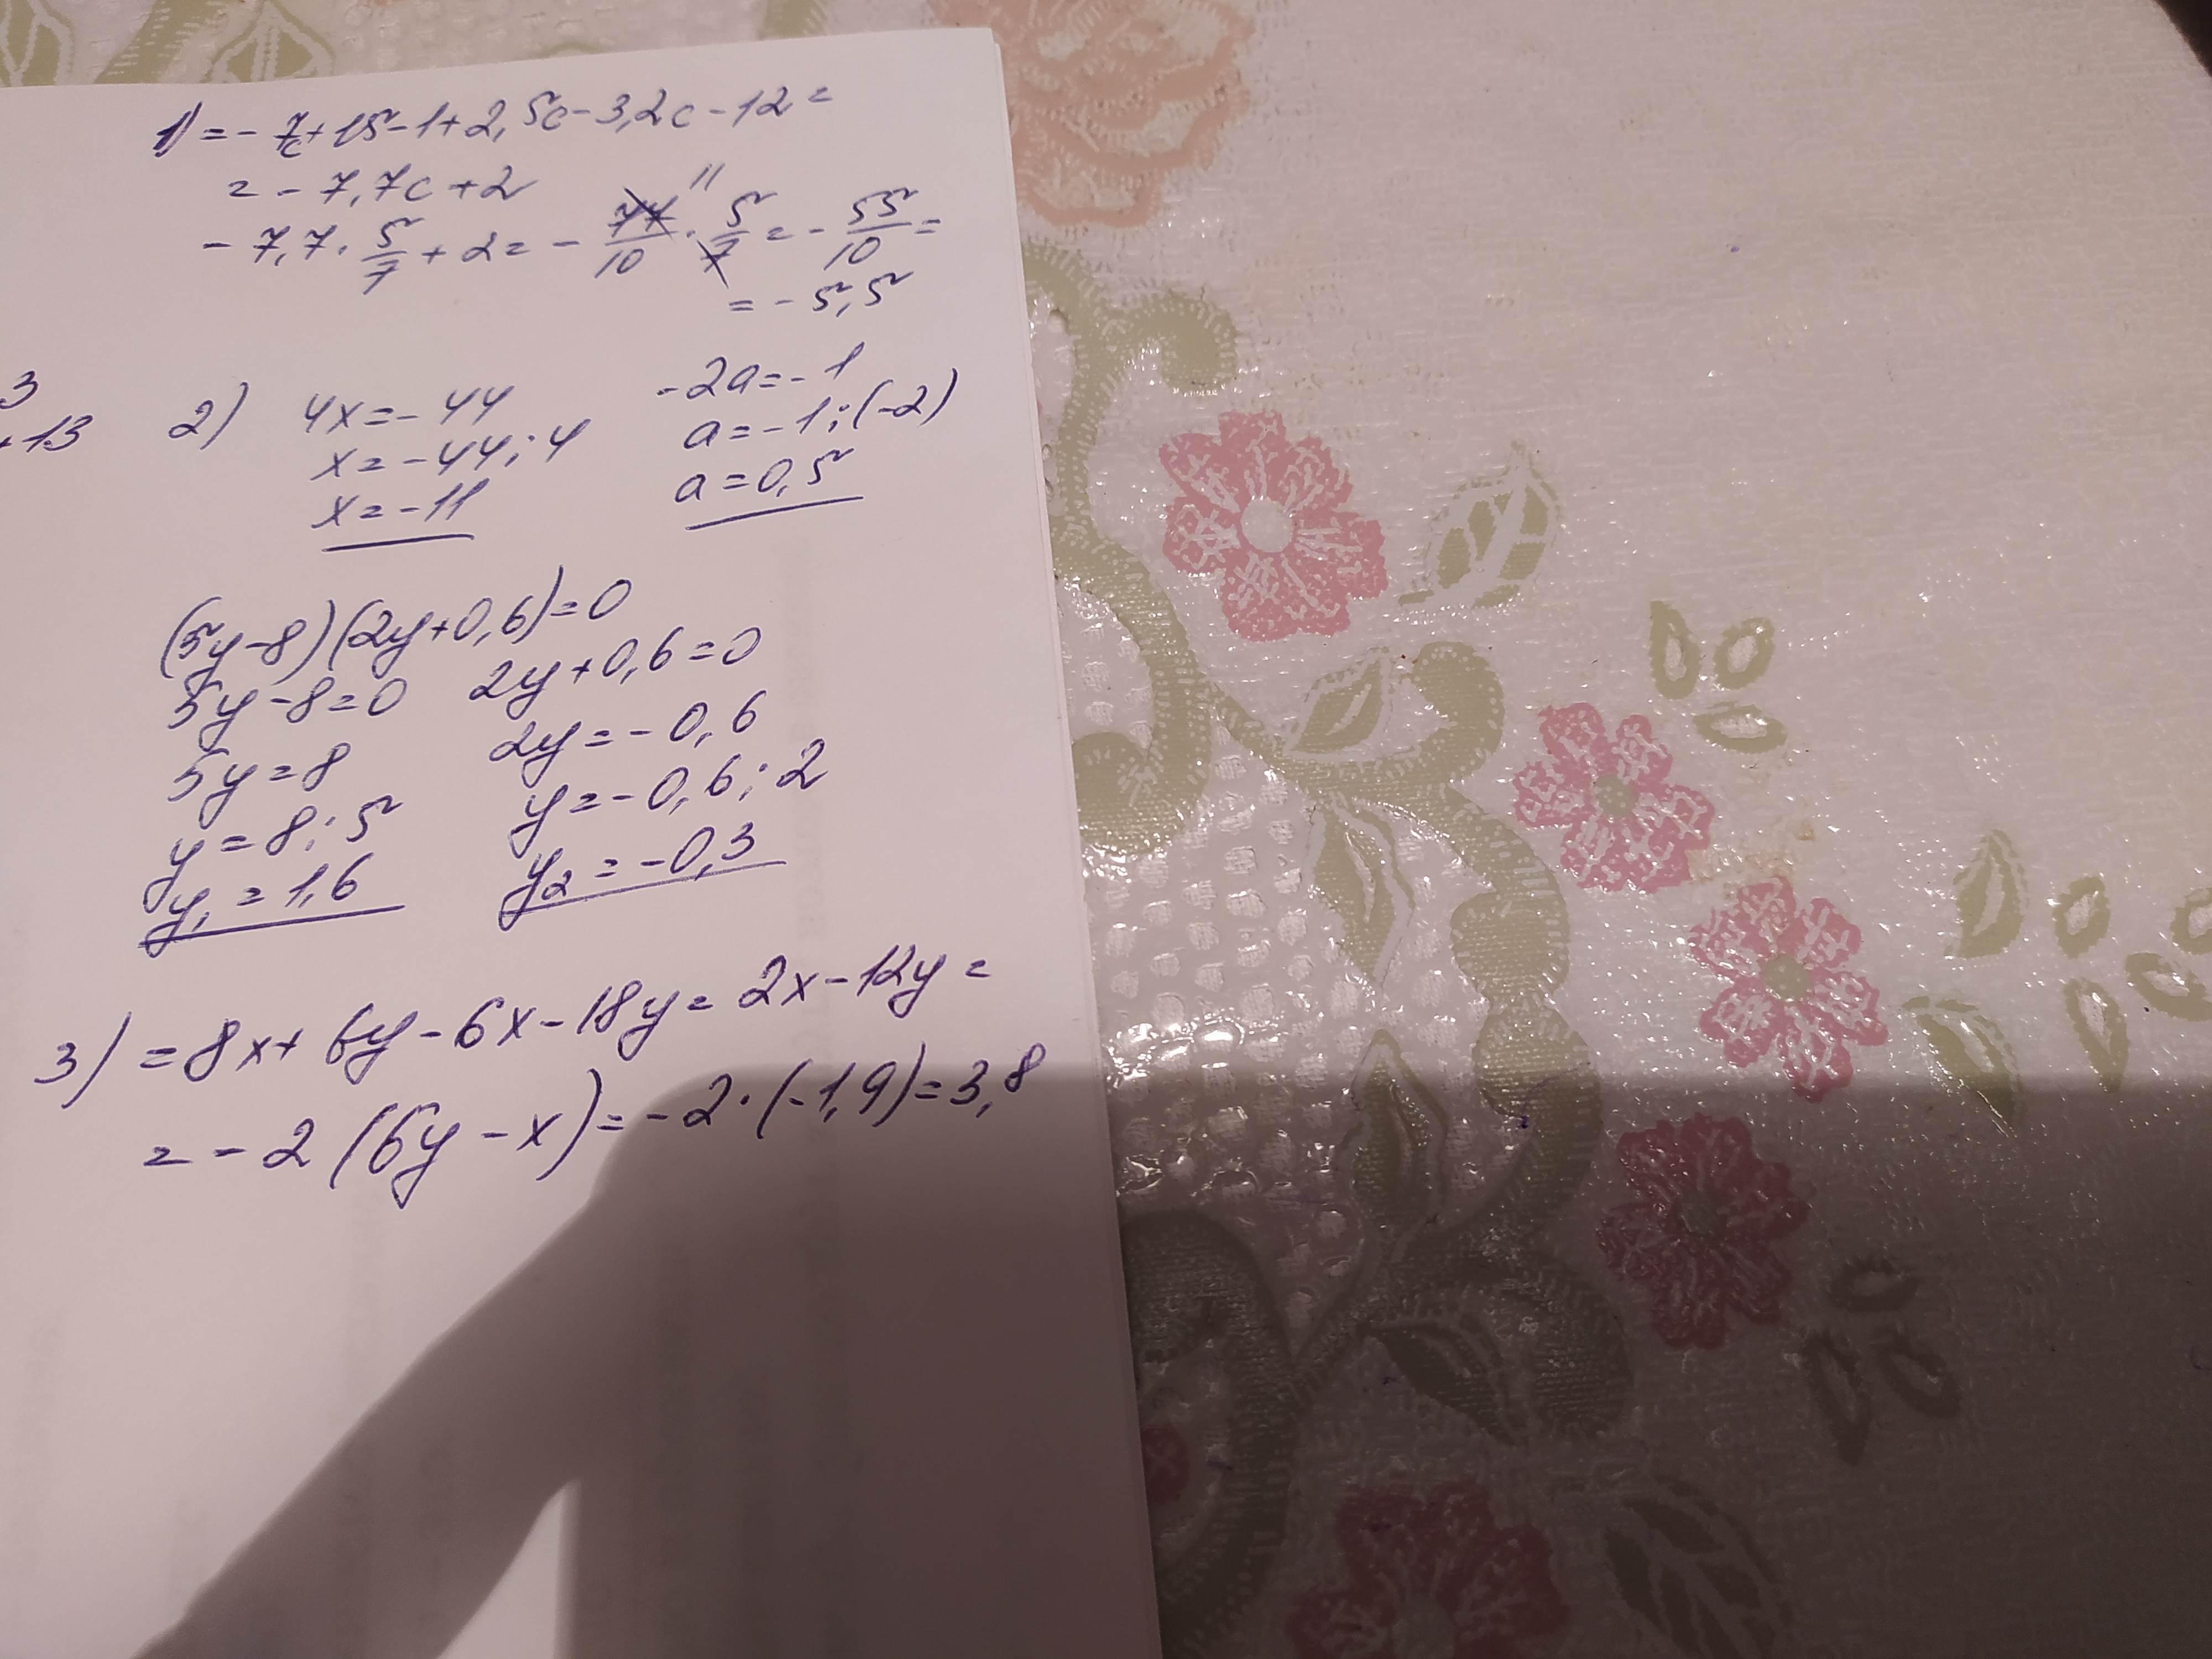 1) = - 7c + 15 - 1 + 2,5c - 3,2c - 12 =
= - 7,7c + 2
- 7,7 · 5/7 + 2 = - 77/10 · 5/7 = - 55/10 =
11
= - 5,5
3
+13
2) 4x = - 44
x = - 44 : 4
x = - 11
-2a = - 1
a = - 1 : (-2)
a = 0,5
(5y - 8)(2y + 0,6) = 0
5y - 8 = 0
5y = 8
y = 8 : 5
y₁ = 1,6
2y + 0,6 = 0
2y = - 0,6
y = - 0,6 : 2
y₂ = - 0,3
3) = 8x + 6y - 6x - 18y = 2x - 12y =
= - 2 (6y - x) = - 2 · (-1,9) = 3,8